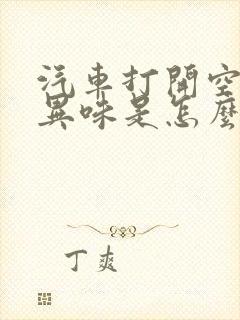 汽車打開空
異味是怎麼
丁爽